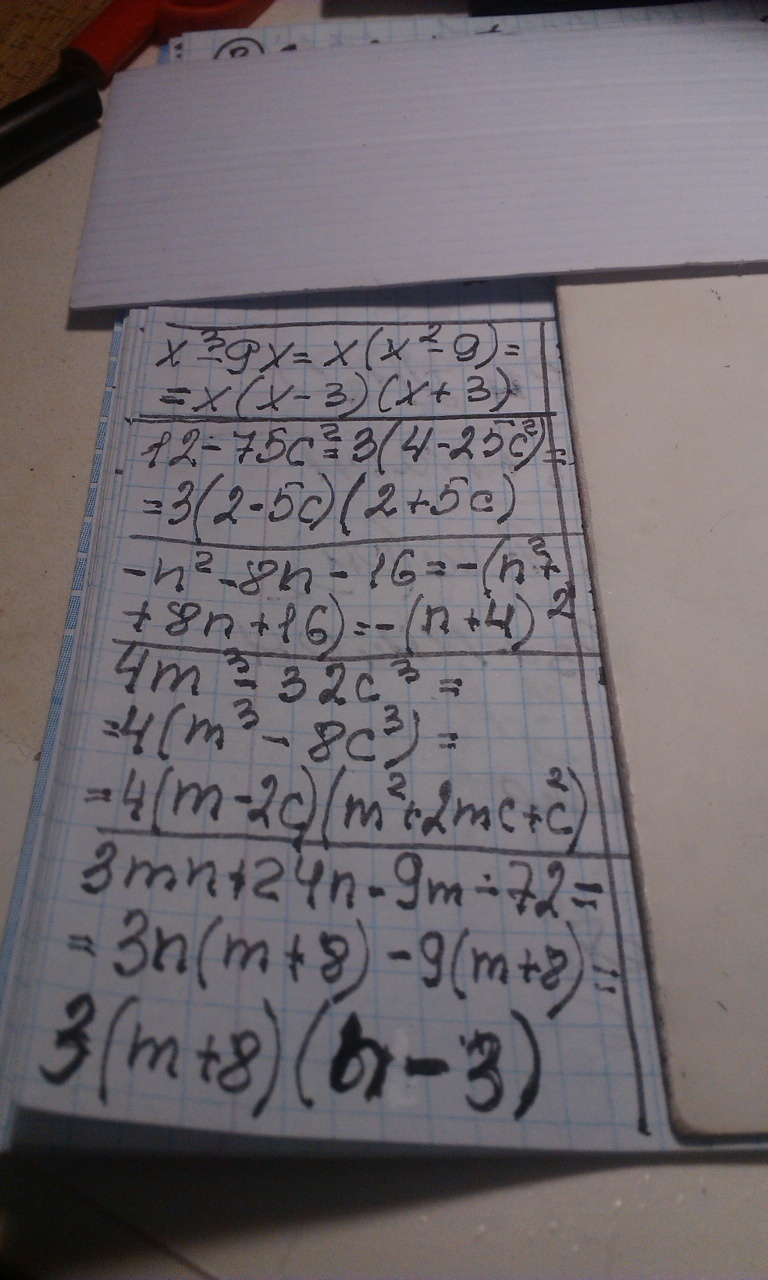 x³-9x=x(x²-9)=
=x(x-3)(x+3)
12-75c²=3(4-25c²)=
=3(2-5c)(2+5c)
-n²-8n-16=-(n²+
+8n+16)=-(n+4)²
4m³-32c³=
=4(m³-8c³)=
=4(m-2c)(m²+2mc+c²)
3mn+24n-9m-72=
=3n(m+8)-9(m+8)=
3(m+8)(n-3)